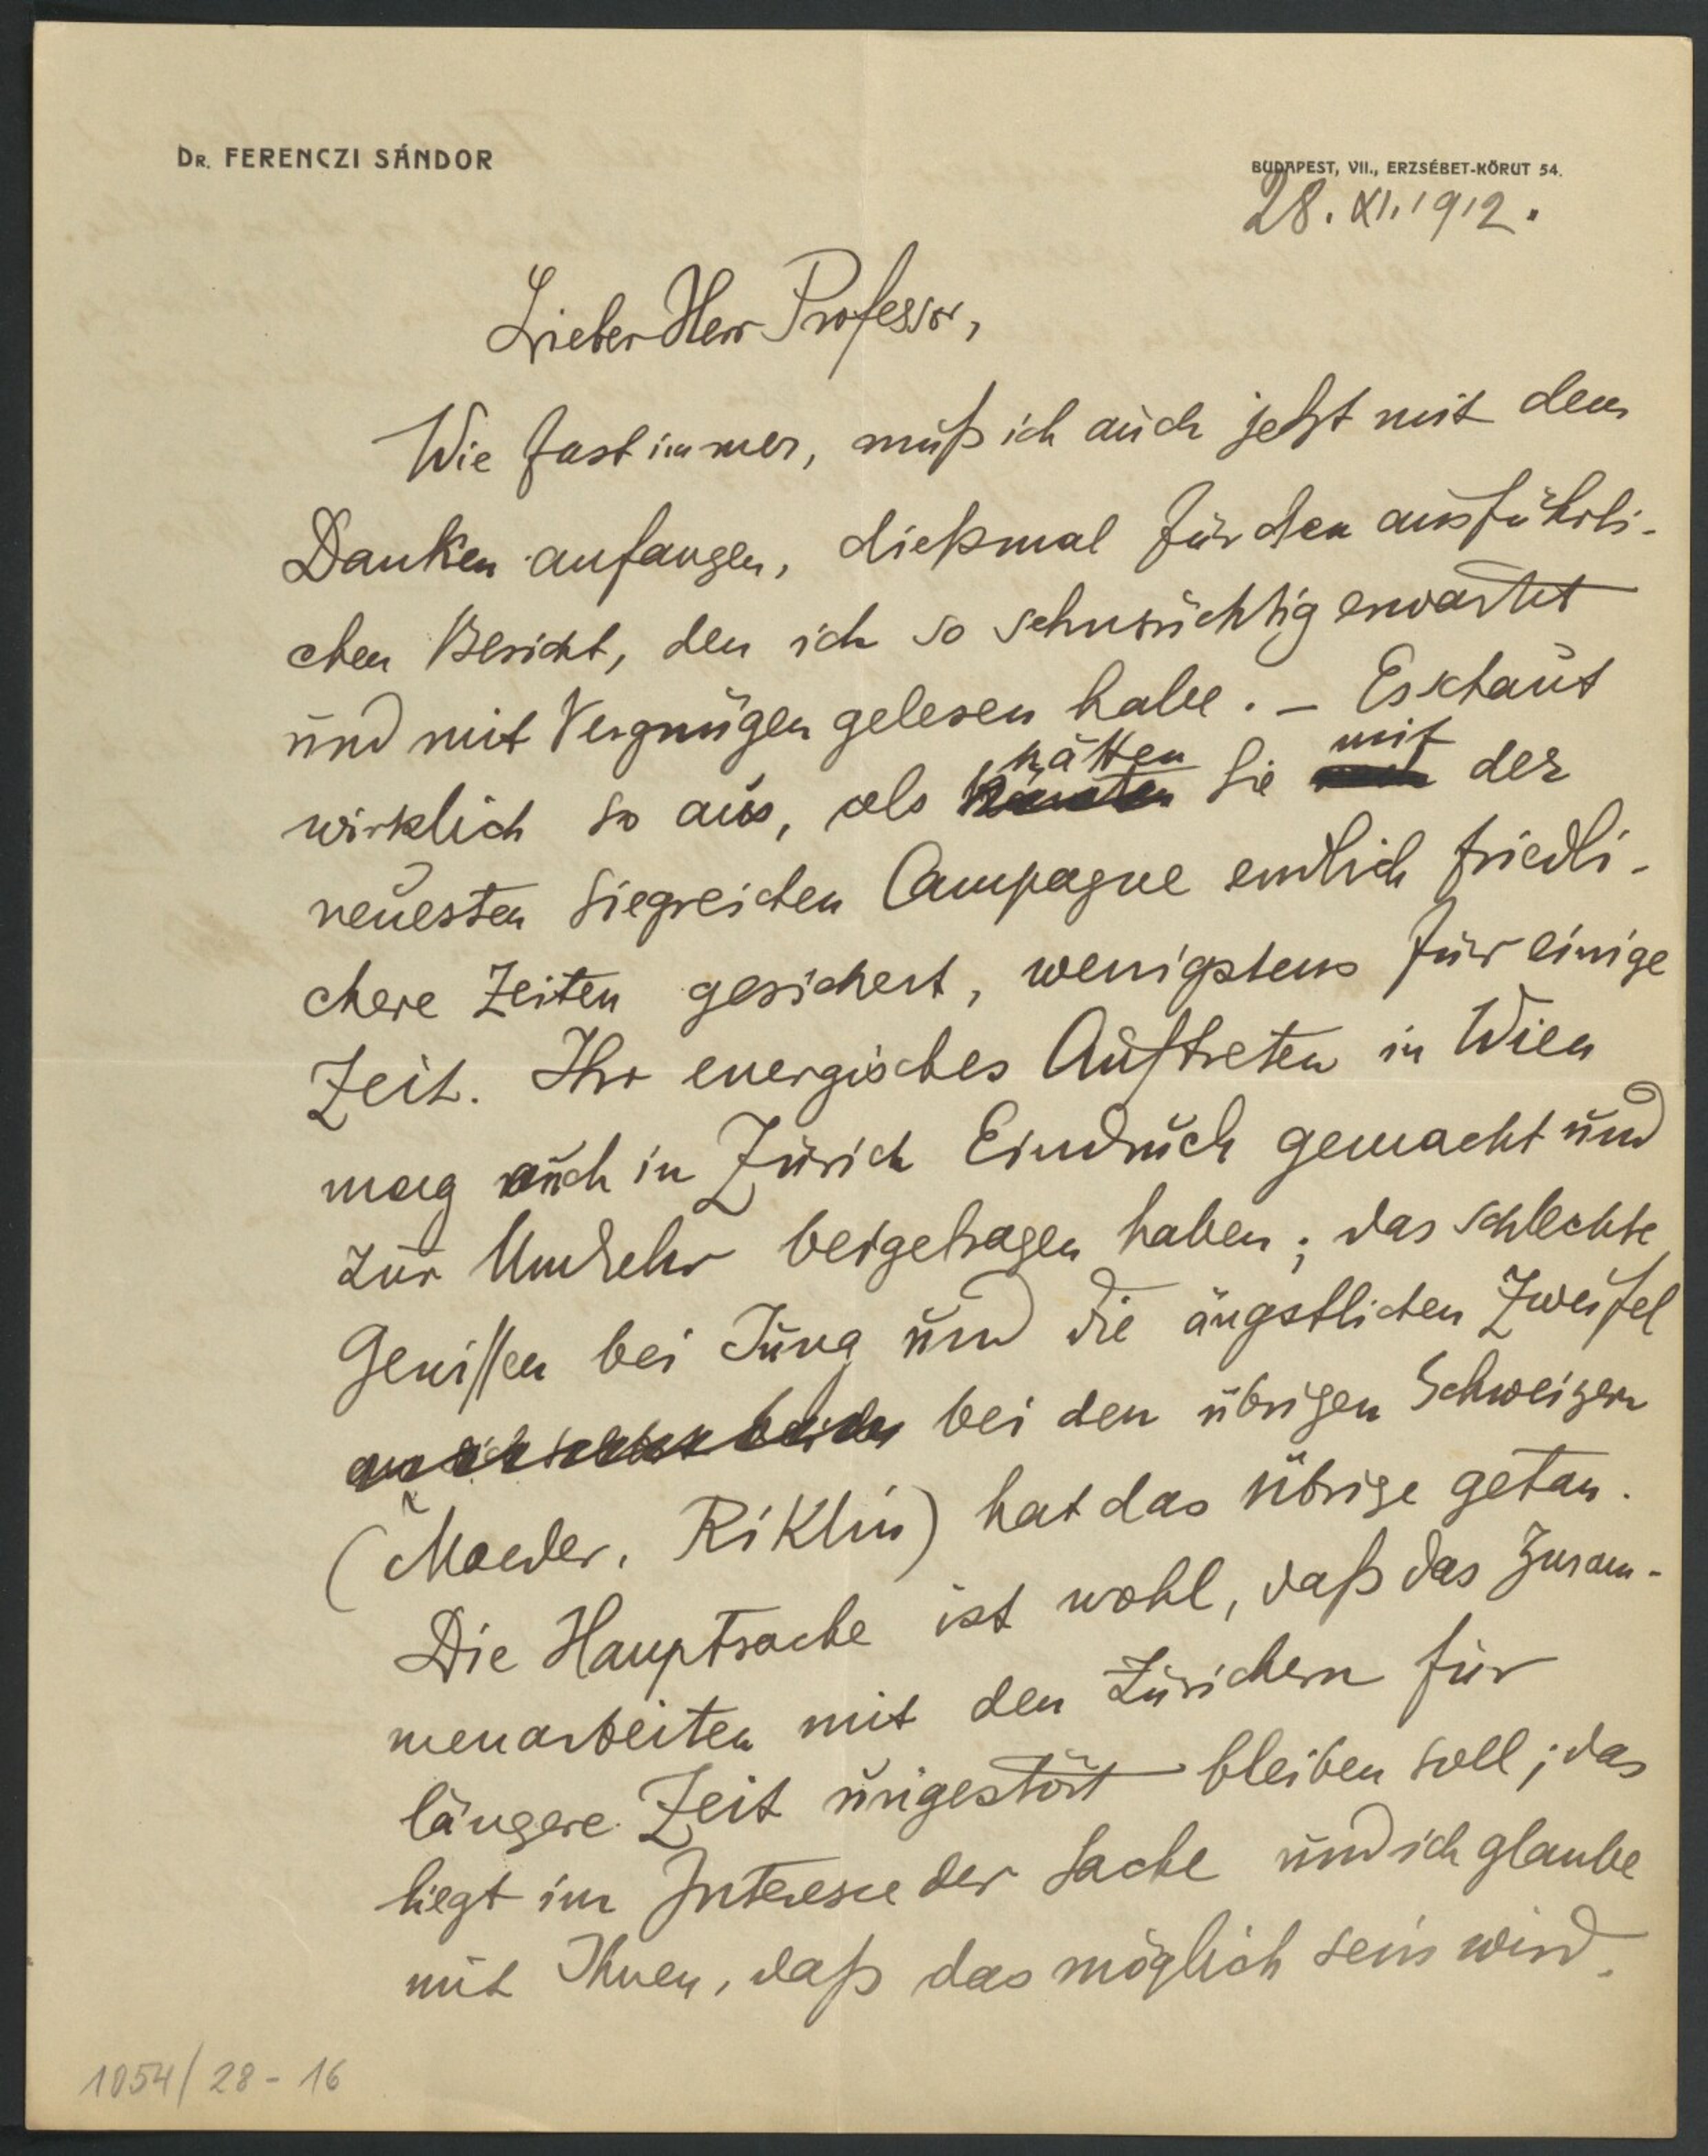 DR. FERENCZI SÁNDOR
BUDAPEST, VII., ERZSÉBET-KÖRUT 54.
28. XI. 1912.
Lieber Herr Professor,
Wie fast immer, muß ich auch jetzt mit dem
Danken anfangen, dießmal für den ausführli-
chen Bericht, den ich so sehnsüchtig erwartet
und mit Vergnügen gelesen habe. – Es schaut
wirklich so aus, als hätten Sie mit der
neuesten siegreichen Campagne endlich friedli-
chere Zeiten gesichert, wenigstens für einige
Zeit. Ihr energisches Auftreten in Wien
mag auch in Zürich Eindruck gemacht und
zur Umkehr beigetragen haben; das schlechte
Gewissen bei Jung und die ängstlichen Zweifel
bei den übrigen Schweizern
(Maeder, Riklin) hat das übrige getan.
Die Hauptsache ist wohl, daß das Zusam-
menarbeiten mit den Zürichern für
längere Zeit ungestört bleiben soll; das
liegt im Interesse der Sache und ich glaube
mit Ihnen, daß das möglich sein wird.
1054/28-16